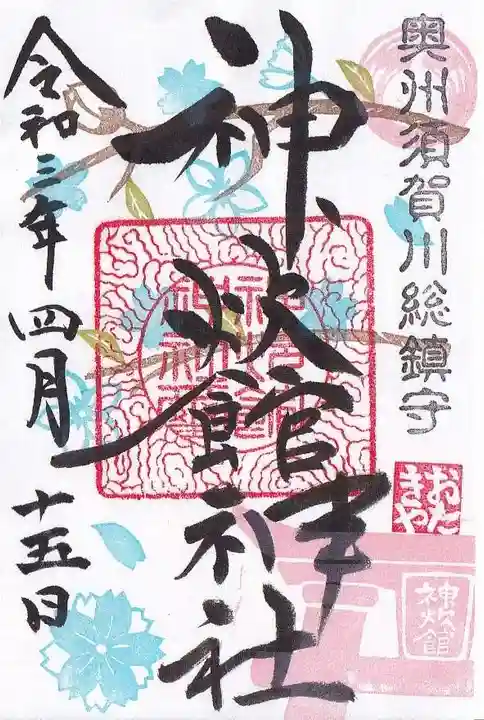 奥州須賀川総鎮守
おた
きや
神炊館
神炊館神社
令和三年四月十五日